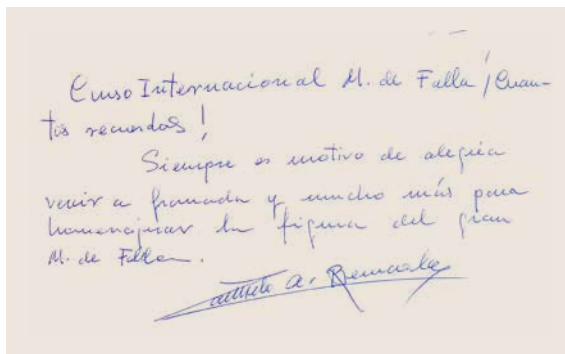 Curso Internacional M. de Falla ¡Cuan-
tos recuerdos!
Siempre es motivo de alegría
venir a Granada y mucho más para
homenajear la figura del gran
M. de Falla.
a.